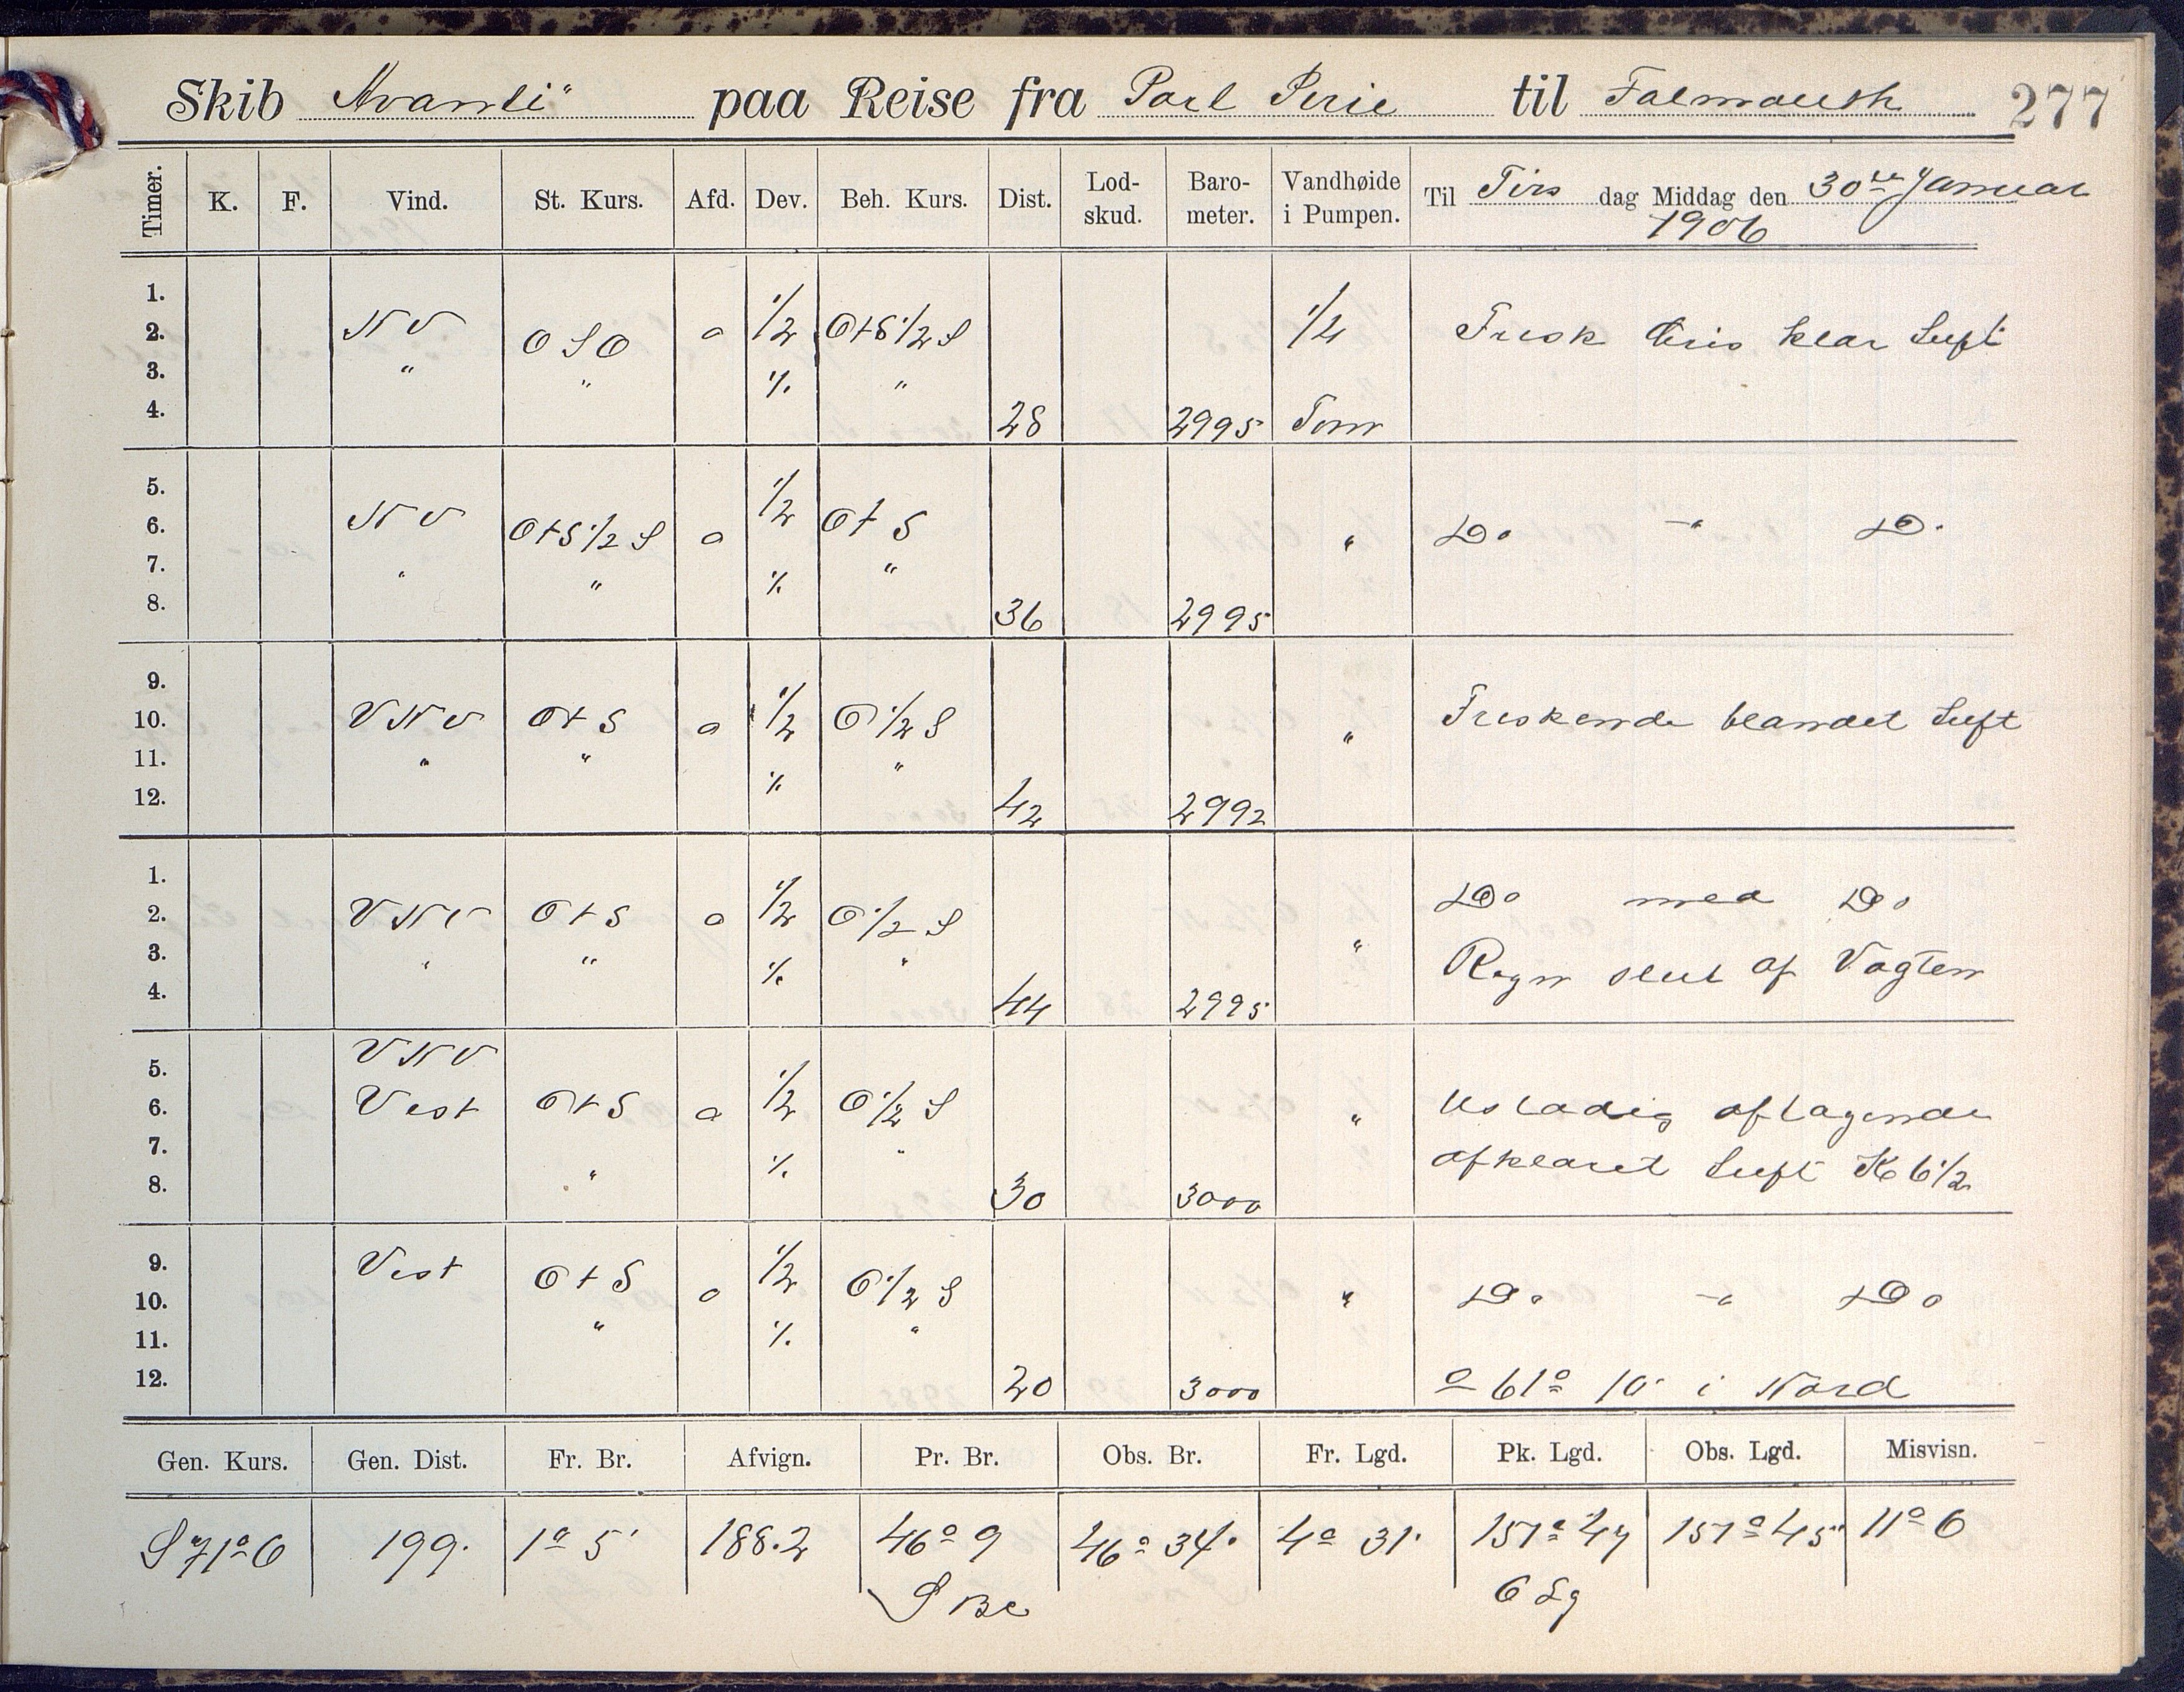 Skib "Avanti" paa Reise fra Port Pirie til Falmouth 277
Timer. K. F. Vind. St. Kurs. Afd. Dev. Beh. Kurs. Dist. Lod-skud. Baro-meter. Vandhøide i Pumpen. Til Tirs dag Middag den 30te Januar
1906
1.
2. NV OSO o 1/2 OtS 1/2 S 1/4 Frisk Bris klar Luft
3. " " % "
4. 28 2995 Tom
5.
6. NV OtS 1/2 S o 1/2 OtS " Do -"- Do
7. " " % "
8. 36 2995
9.
10. VNV OtS o 1/2 O 1/2 S " Friskende blandet Luft
11. " " % "
12. 42 2992
1. Do med Do
2. VNV OtS o 1/2 O 1/2 S "
3. " " % " Regn slut af Vagten
4. 44 2995
5. VNV
6. Vest OtS o 1/2 O 1/2 S " Ustadig aftagende
7. " % " afklaret Luft K 6 1/2
8. 30 3000
9. Vest
10. OtS o 1/2 O 1/2 S " Do -"- Do
11. " % "
12. 20 3000 61° 10' i Nord
Gen. Kurs. Gen. Dist. Fr. Br. Afvign. Pr. Br. Obs. Br. Fr. Lgd. Pk. Lgd. Obs. Lgd. Misvisn.
S 71° O 199. 1° 5' 188.2 46° 9 46° 34' 4° 31' 151° 47 151° 45' 11° O
S Br O Lg